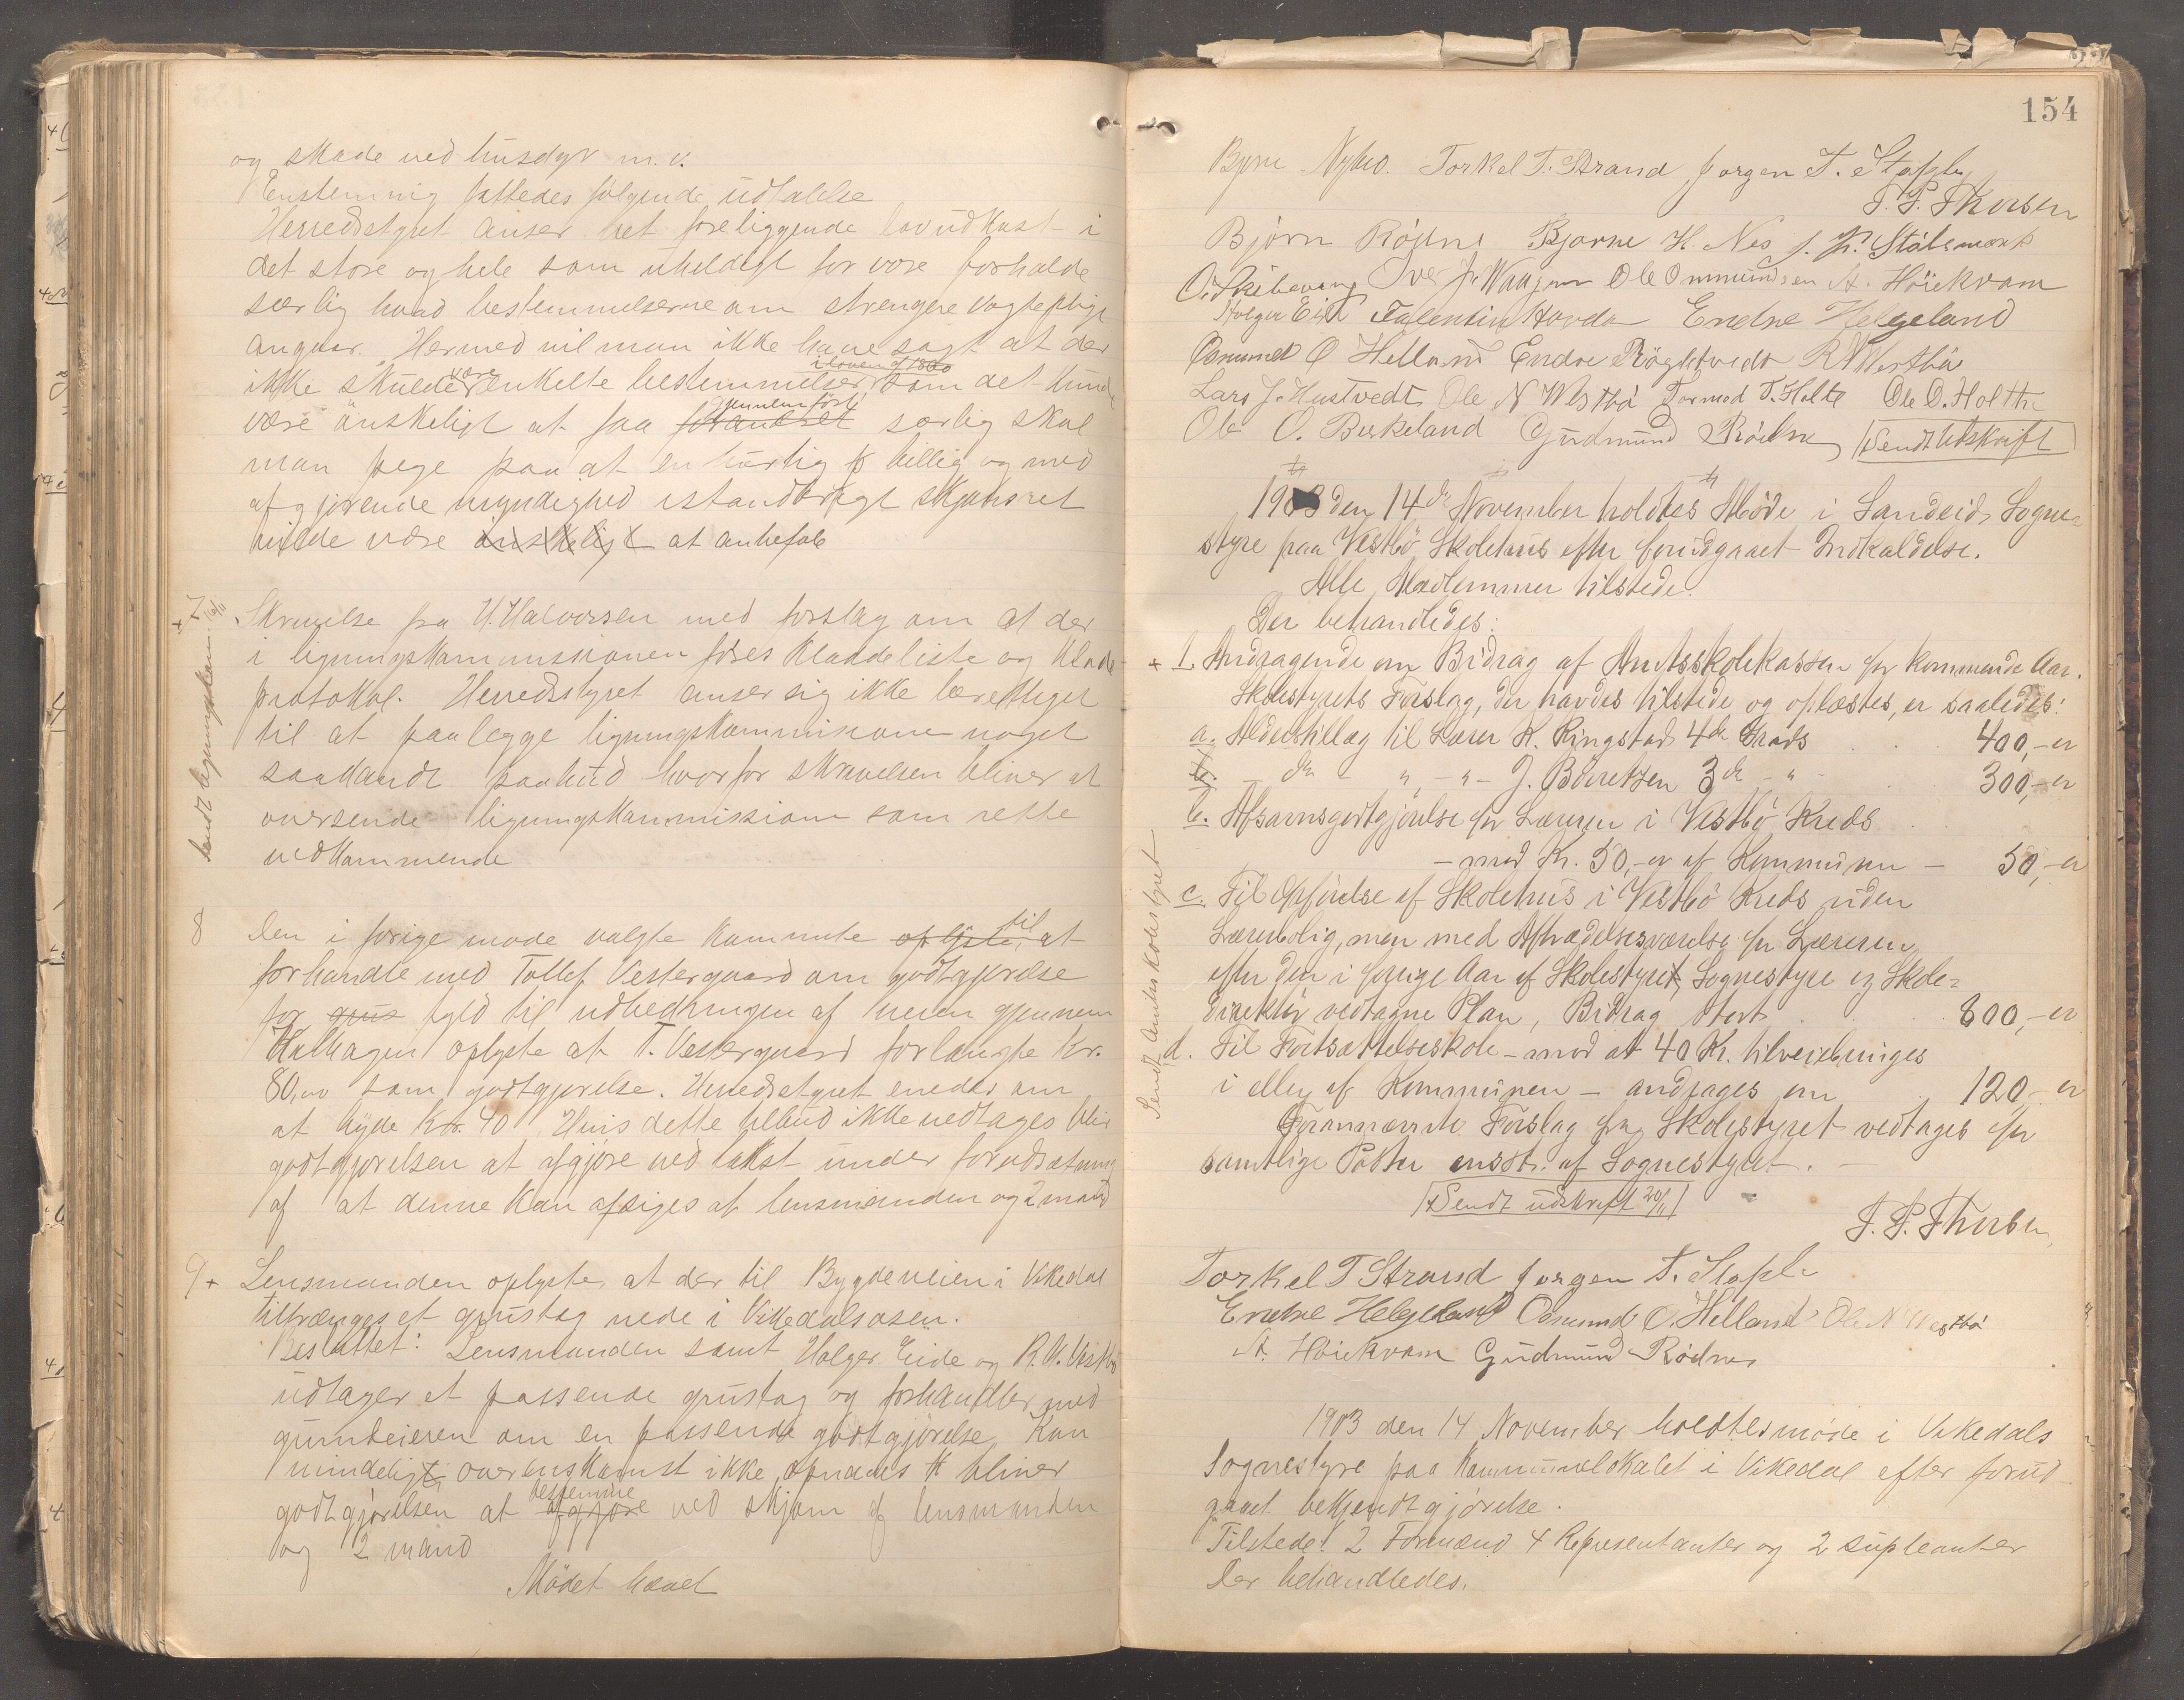 og skade ved husdyr m.v.
Enstemmig fattedes følgende udtalelse
Herredsstyret anser det foreliggende lovudkast i
det store og hele som uheldigt for vore forholde
særlig hvad bestemmelserne om strengere vogtepligt
angaar. Hermed vil man ikke have sagt at der
i loven af 1860
ikke skulde være enkelte bestemmelser som det kunde
gjennemført
være ønskeligt at faa forandret særlig skal
man pege paa at en hurtig billig og med
afgjørende myndighed istandbragt skjønsret
vilde være ønskeligt at anbefale
+7 Skrivelse fra H. Halvorsen med forslag om at der
i ligningskommissionen føres Kladdeliste og Klade-
protokol. Herredsstyret anser sig ikke berettiget
til at paalegge ligningskommissionen noget
saadandt paabud hvorfor skrivelsen bliver at
oversende ligningskommissionen som rette
vedkommende
sendt ligningskom. 16/11
8 Den i forige møde valgte kommite oplyste til at
forhandle med Tollef Vestergaard om godtgjørelse
for grus fyld til udbedringen af veien gjennem
oplyste at T. Vestergaard forlangte Kr.
80,00 som godtgjørelse. Herredsstyret enedes om
at byde Kr. 40. Hvis dette tilbud ikke vedtages blir
godtgjørelsen at afgjøre ved takst under forudsætning
af at denne kan afsiges af lensmanden og 2 mand
9+ Lensmanden oplyste at der til Bygdeveien i Vikedal
tiltrænges et grustag nede i Vikedalsosen.
Besluttet: Lensmanden samt Holger Eide og R. N. Vestbø
udtager et passende grustag og forhandler med
grundeieren om en passende godtgjørelse. Kan
mindelig overenskomst ikke opnaaes bliver
bestemme
godtgjørelsen at afgjøre ved skjøn af lensmanden
og 2 mand
Mødet hævet
154
Torkel T. Strand Jørgen T. Stople
T. P. Thorsen
Bjørn Rödne Bjarne H. Nes J. P. Stålemark
Ole Ommundsen A. Höiekvam
Holger Eide Falentin Hovda Endre Helgeland
Osmund O Helland Endre Røgletvedt R N Westbø
Lars J. Hustvedt Ole N Westbø Tormod T. Holte Ole O. Holthe
Ole O. Birkeland Gudmund Rödne Sendt Udskrift
1903 den 14de November holdtes Møde i Sandeids Sogne=
styre paa Vestbø Skolehus efter forudgaaet Indkaldelse.
Alle Medlemmer tilstede.
Der behandledes:
+ 1. Andragende om Bidrag af Amtsskolekassen for kommende Aar.
Skolestyrets Forslag, der havdes tilstede og oplæstes, er saaledes:
a. Alderstillæg til Lærer K. Ringstad 4de Grads 400,-er
b. - do - " - " - J. Böuretsen 3de - " 300,-er
b. Afsavnsgodtgjørelse for Læreren i Vestbø Kreds
- mod Kr. 50,-er af Kommunen - 50,-er
c. Til Opførelse af Skolehus i Vestbø Kreds uden
Lærerbolig, men med Aftrædelsesværelse for Læreren
efter den i forrige Aar af Skolestyret, Sognestyre og Skole=
direktør vedtagne Plan, Bidrag stort 800,-er
d. Til Fortsættelsesskole - mod at 40 Kr. tilveiebringes
i eller af Kommunen - andrages om 120,-er
Forannævnte Forslag fra Skolestyret vedtages for
samtlige Poster enst. af Sognestyret. -
Sendt udskrift 20/11
Sendt Amtsskolestyret
T. P. Thorsen
Torkel T Strand Jørgen T. Stople
Endre Helgeland Osmund O. Helland Ole N Westbø
A. Höiekvam Gudmund Rödne
1903 den 14 November holdtes møde i Vikedals
Sognestyre paa Kommunelokalet i Vikedal efter forud-
gaaet bekjendtgjørelse.
Tilstede: 2 Formænd 4 Representanter og 2 supleanter
Der behandledes.